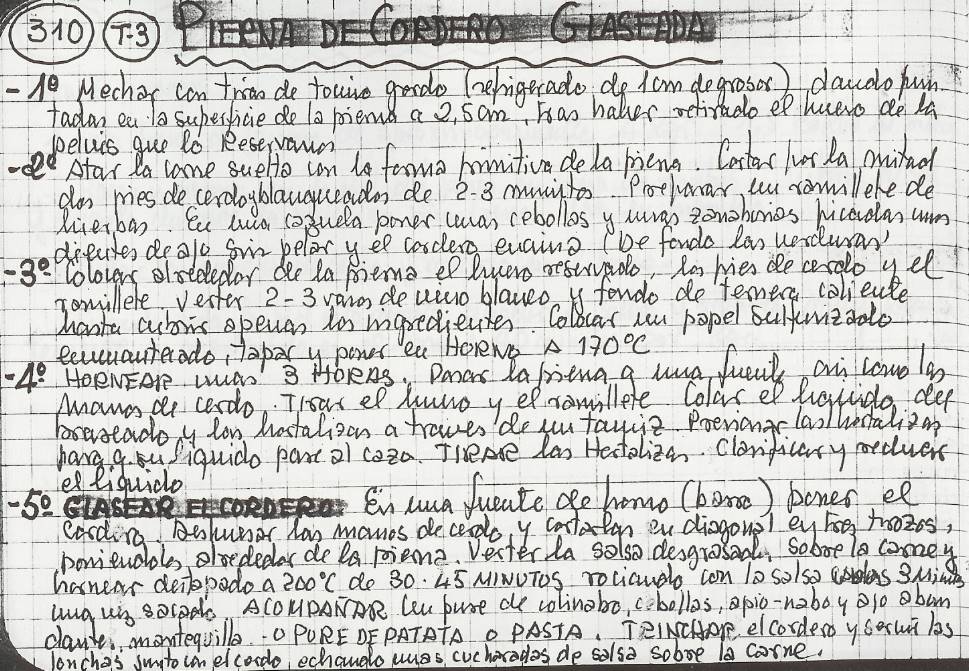 310 T-3 PIERNA DE CORDERO GLASEADA
- 1º Mechar con tiras de tocino gordo (refrigerado de 1cm de grosor) dando pun
tadas en la superficie de la pierna a 2,5cm, tras haber retirado el hueso de la
pelvis que lo Reservamos
- 2º Atar la carne suelta con la forma primitiva de la pierna. Cortar por la mitad
dos pies de cerdo blanqueados de 2-3 minutos. Preparar un ramillete de
hierbas. En una cazuela poner unas cebollas y unas zanahorias picadas unos
dientes de ajo sin pelar y el cordero encima (De fondo las verduras)
- 3º Colocar alrededor de la pierna el hueso reservado, los pies de cerdo y el
ramillete. Verter 2-3 vasos de vino blanco y fondo de ternera caliente
hasta cubrir apenas los ingredientes. Colocar un papel sulfurizado
enmantecado, tapar y poner en HORNO A 170ºC
- 4º HORNEAR unas 3 HORAS. Pasar la pierna a una fuente asi como las
Manos de cerdo. Tirar el hueso y el ramillete Colar el liquido del
braseado y las hortalizas a traves de un tamiz. Presionar las hortalizas
para q. su liquido pase al cazo. TIRAR las Hortalizas. Clarificar y reducir
el liquido
- 5º GLASEAR EL CORDERO: En una fuente de horno (barro) poner el
Cordero. Deshuesar las manos de cerdo y cortarlas en diagonal en tres trozos,
poniendolos alrededor de la pierna. Verter la salsa desgrasada sobre la carne y
hornear destapado a 200ºC de 30-45 MINUTOS rociando con la salsa 3 Minutos
una vez sacado ACOMPAÑAR con pure de colinabo, cebollas, apio-nabo y ajo abun
dante, mantequilla. - O PURE DE PATATA O PASTA. TRINCHAR el cordero y servir las
lonchas junto con el cerdo, echando unas cucharadas de salsa sobre la carne.